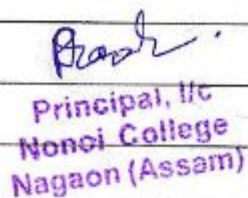 Principal, I/c
Nonoi College
Nagaon (Assam)